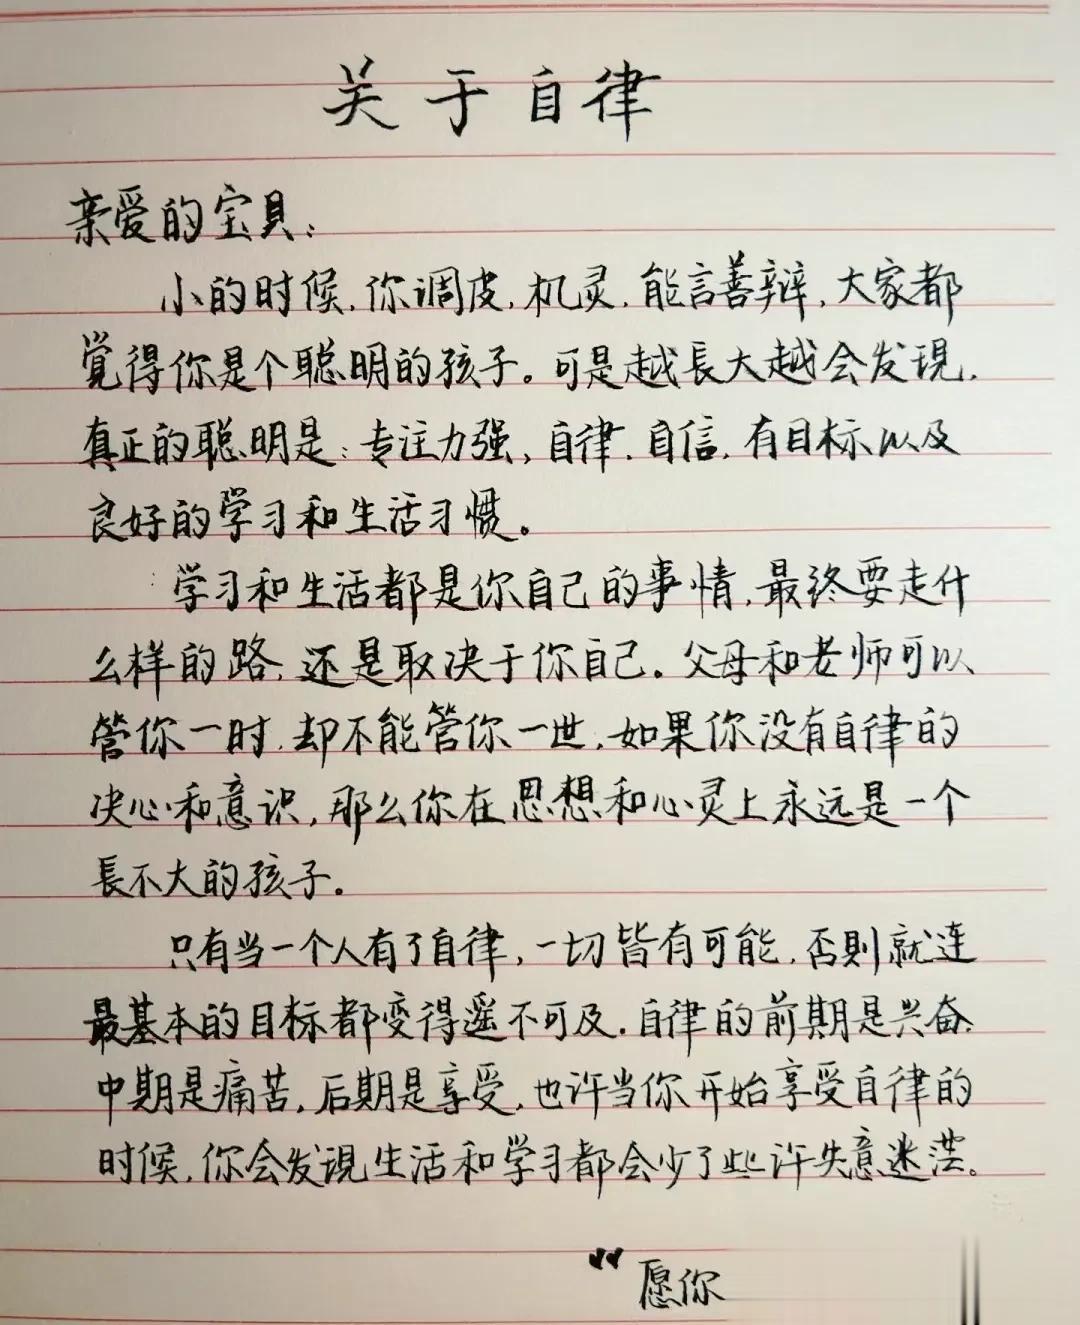 关于自律
亲爱的宝貝：
小的时候，你调皮，机灵，能言善辩，大家都
觉得你是个聪明的孩子。可是越長大越会发現，
真正的聪明是：专注力强，自律，自信，有目标以及
良好的学习和生活习惯。
学习和生活都是你自己的事情，最终要走什
么样的路，还是取决于你自己。父母和老师可以
管你一时，却不能管你一世，如果你没有自律的
决心和意识，那么你在思想和心灵上永远是一个
長不大的孩子。
只有当一个人有了自律，一切皆有可能，否則就连
最基本的目标都变得遥不可及，自律的前期是兴奋，
中期是痛苦，后期是享受，也许当你开始享受自律的
时候，你会发現生活和学习都会少了些许失意迷茫。
愿你